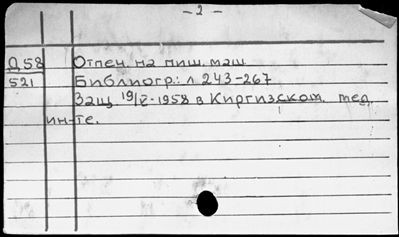 — 2 —
Д58 Отпеч. на пиш. маш.
521 Библиогр.: л 243-267
Защ 19/V-1958 в Киргизском. мед.
ин-те.